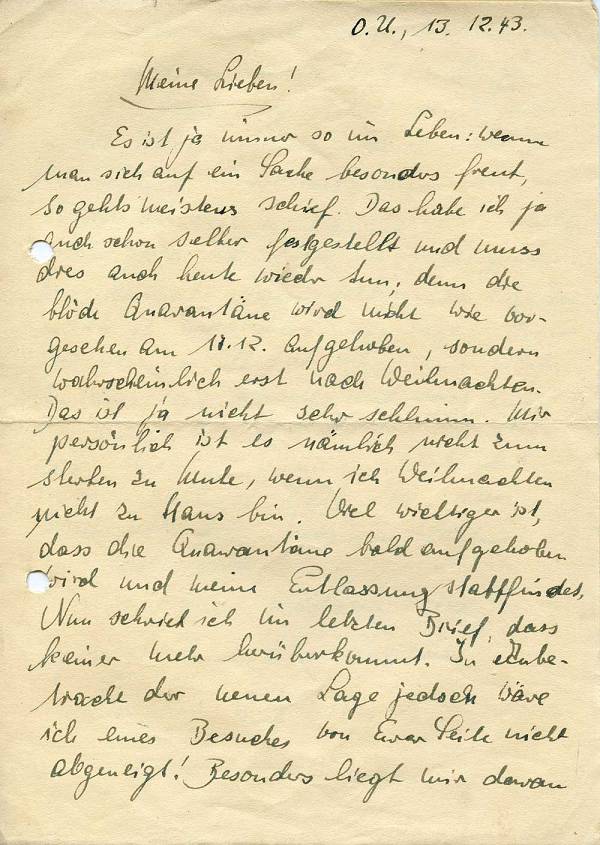 O.U., 13. 12. 43.
Meine Lieben!
Es ist ja immer so im Leben: wenn
man sich auf ein Sache besonders freut,
so gehts meistens schief. Das habe ich ja
auch schon selber festgestellt und muss
dies auch heute wieder tun, denn die
blöde Quarantäne wird nicht wie vor-
gesehen am 17.12. aufgehoben, sondern
wahrscheinlich erst nach Weihnachten.
Das ist ja nicht sehr schlimm. Mir
persönlich ist es nämlich nicht zum
sterben zu Mute, wenn ich Weihnachten
nicht zu Haus bin. Viel wichtiger ist,
dass die Quarantäne bald aufgehoben
wird und meine Entlassung stattfindet.
Nun schrieb ich im letzten Brief, dass
keiner mehr herüberkommt. In Anbe-
tracht der neuen Lage jedoch wäre
ich eines Besuches von Eurer Seite nicht
abgeneigt! Besonders liegt mir daran